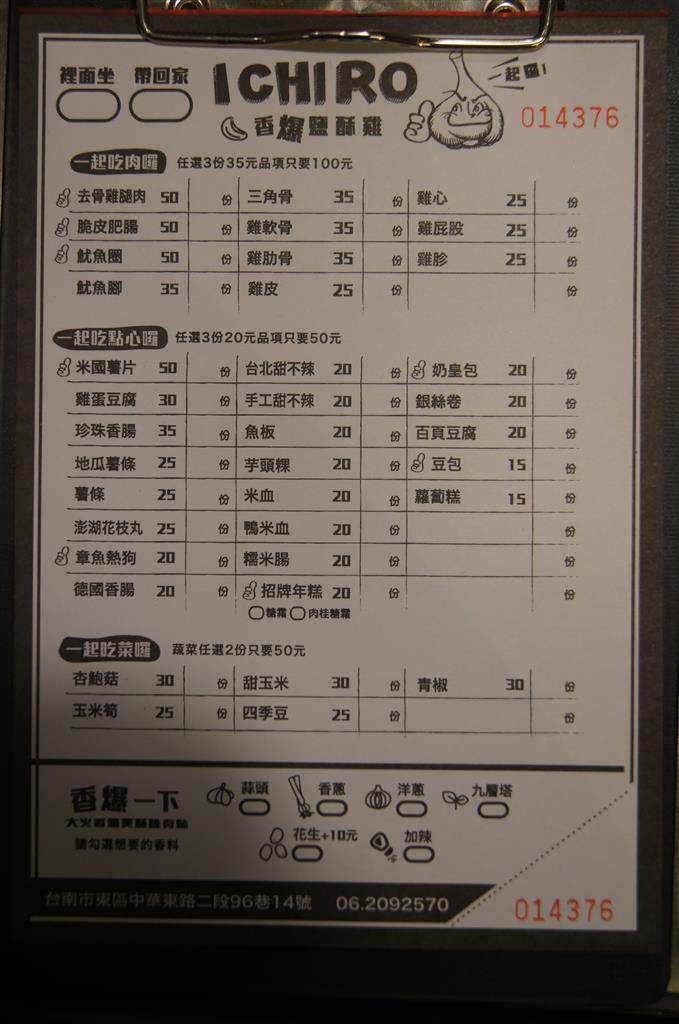 裡面坐 帶回家 ICHIRO 一起囉!
香爆鹽酥雞 014376
一起吃肉囉 任選3份35元品項只要100元
去骨雞腿肉 50 份 三角骨 35 份 雞心 25 份
脆皮肥腸 50 份 雞軟骨 35 份 雞屁股 25 份
魷魚圈 50 份 雞肋骨 35 份 雞胗 25 份
魷魚腳 35 份 雞皮 25 份 份
一起吃點心囉 任選3份20元品項只要50元
米國薯片 50 份 台北甜不辣 20 份 奶皇包 20 份
雞蛋豆腐 30 份 手工甜不辣 20 份 銀絲卷 20 份
珍珠香腸 35 份 魚板 20 份 百頁豆腐 20 份
地瓜薯條 25 份 芋頭粿 20 份 豆包 15 份
薯條 25 份 米血 20 份 蘿蔔糕 15 份
澎湖花枝丸 25 份 鴨米血 20 份 份
章魚熱狗 20 份 糯米腸 20 份 份
德國香腸 20 份 招牌年糕 20 份 份
糖霜 肉桂糖霜
一起吃菜囉 蔬菜任選2份只要50元
杏鮑菇 30 份 甜玉米 30 份 青椒 30 份
玉米筍 25 份 四季豆 25 份 份
香爆一下 蒜頭 香蔥 洋蔥 九層塔
請勾選想要的香料 花生+10元 加辣
台南市東區中華東路二段96巷14號 06.2092570 014376